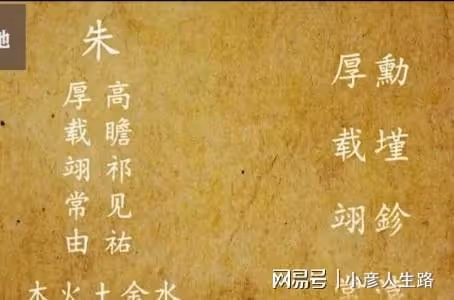 朱
高瞻祁见祐
厚载翊常由
木火土金水
厚勳
载墐
翊鉁
网易号
小彦人生路